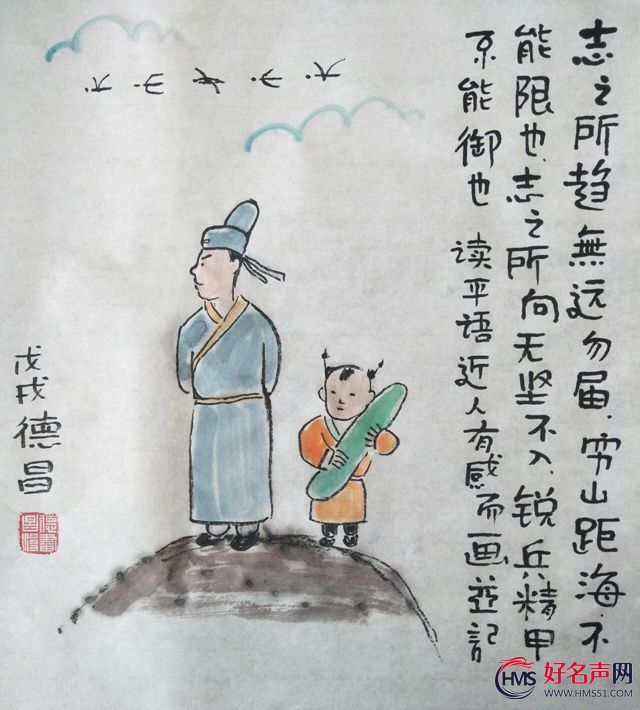 志之所趋無远勿届.穷山距海.不
能限也.志之所向无坚不入.锐兵精甲
不能御也 读平语近人有感而画並記
戊戌德昌
HMS 好名声网
WWW.HMS51.COM